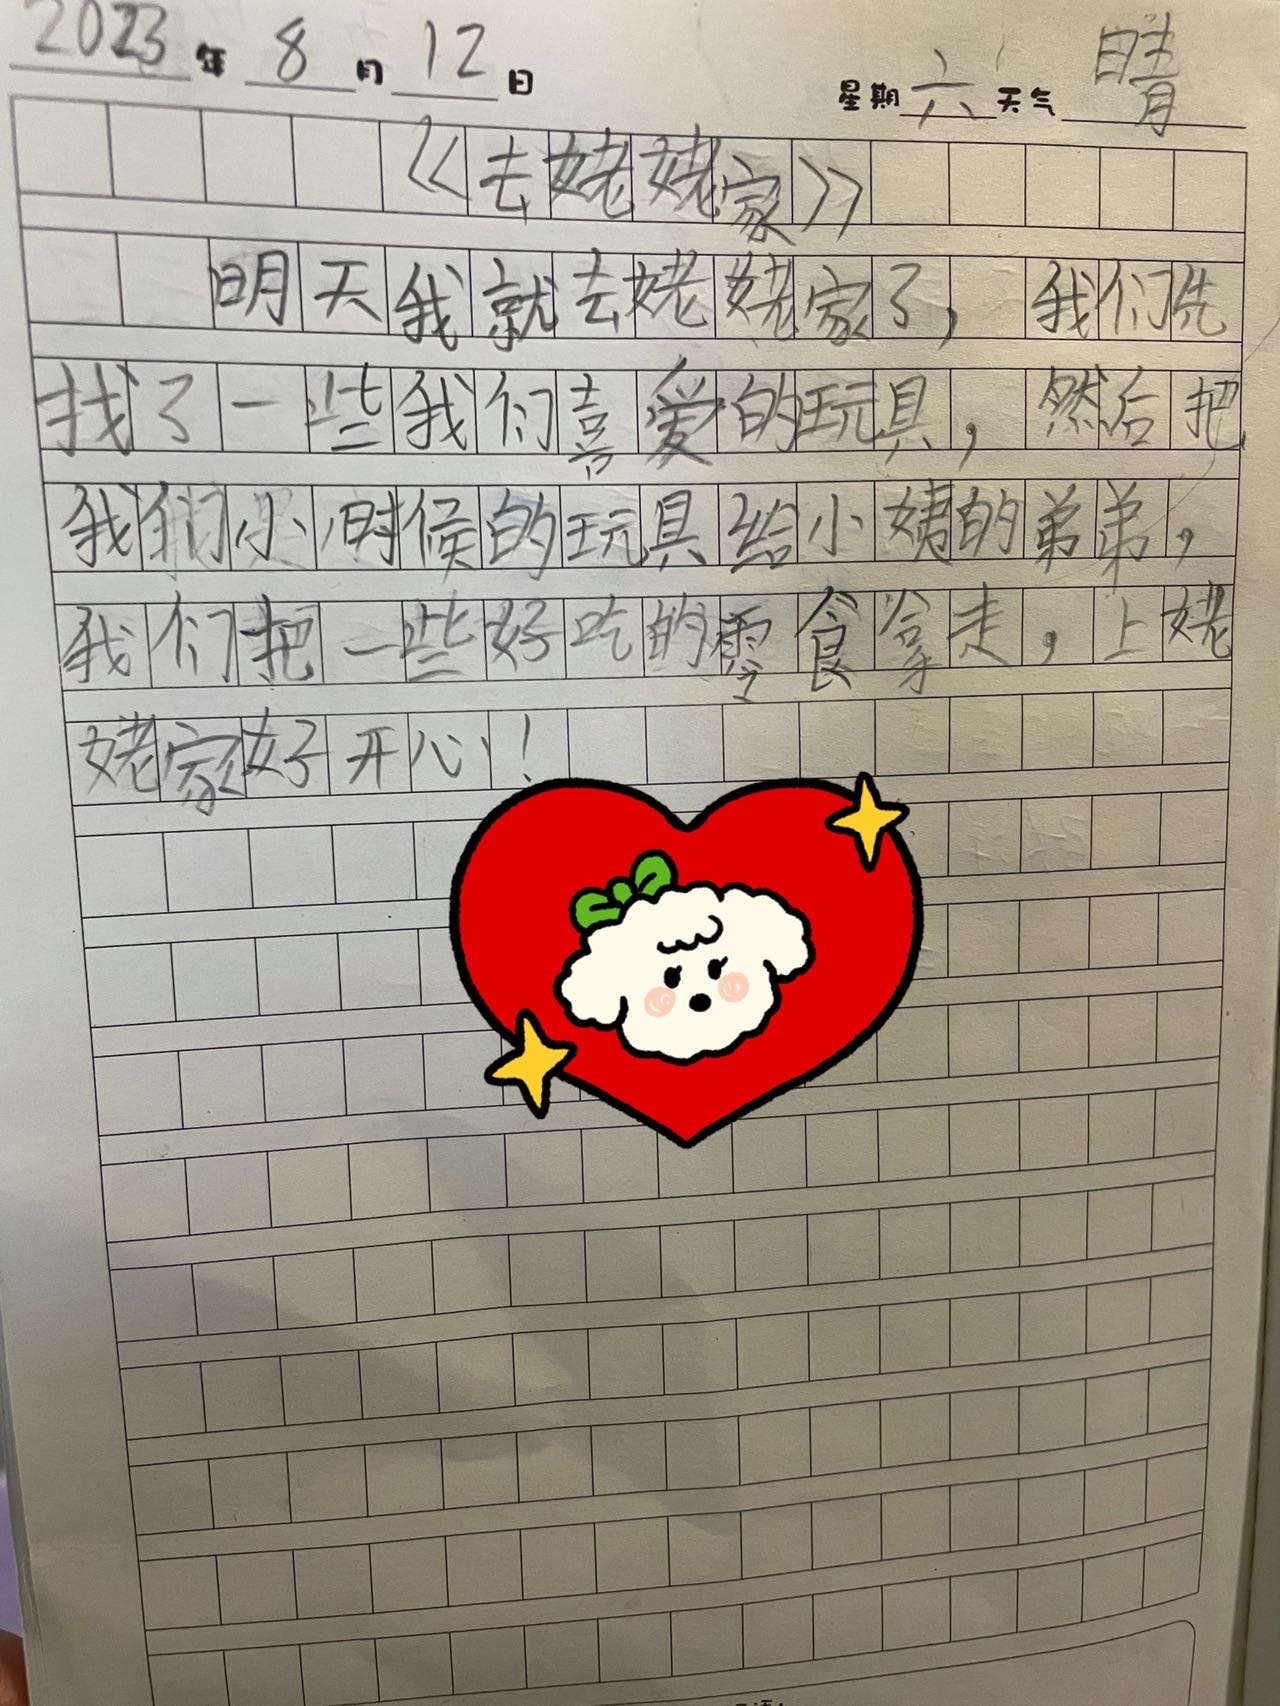 2023年8月12日 星期六 天气 晴
《去姥姥家》
明天我就去姥姥家了，我们先
找了一些我们喜爱的玩具，然后把
我们小时候的玩具给小姨的弟弟，
我们把一些好吃的零食拿走，上姥
姥家好开心！